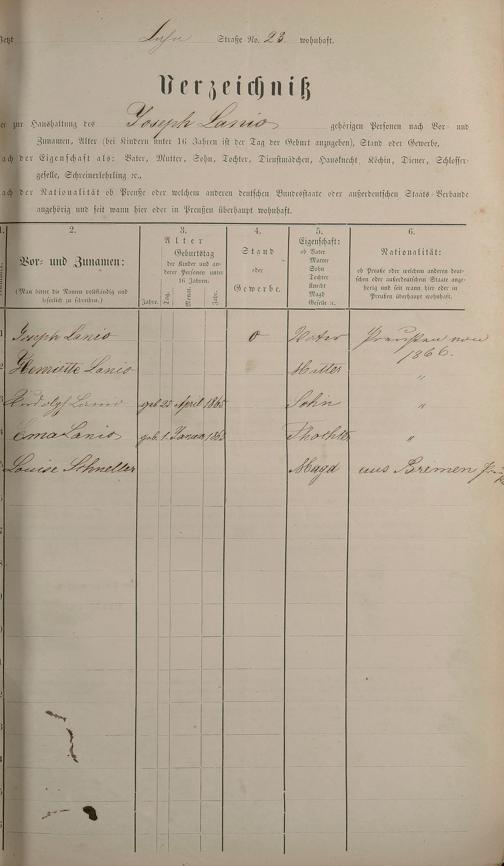 Jetzt Straße No. 23. wohnhaft.
Verzeichniß
der zur Haushaltung des Joseph Lanio gehörigen Personen nach Vor- und
Zunamen, Alter (bei Kindern unter 16 Jahren ist der Tag der Geburt anzugeben), Stand oder Gewerbe,
nach der Eigenschaft als: Vater, Mutter, Sohn, Tochter, Dienstmädchen, Hausknecht, Köchin, Diener, Schlosser-
geselle, Schreinerlehrling ꝛc.,
nach der Nationalität ob Preuße oder welchem anderen deutschen Bundesstaate oder außerdeutschen Staats-Verbande
angehörig und seit wann hier oder in Preußen überhaupt wohnhaft.
1. 2. 3. 4. 5. 6.
Vor- und Zunamen:
(Man bittet die Namen vollständig und
leserlich zu schreiben.)
Alter
Geburtstag
der Kinder und an-
derer Personen unter
16 Jahren.
Jahre. Tag. Monat. Jahr.
Stand
oder
Gewerbe.
Eigenschaft:
ob Vater
Mutter
Sohn
Tochter
Knecht
Magd
Geselle ꝛc.
Nationalität:
ob Preuße oder welchem anderen deut-
schen oder außerdeutschen Staate ange-
hörig und seit wann hier oder in
Preußen überhaupt wohnhaft.
1 Joseph Lanio 0 Vater Preußen
1866.
2 Henriette Lanio Mutter "
3 Rudolph Lanio geb 25 April 1865 Sohn "
4 Ema Lanio geb. 1. Januar Thochter "
5 Louise Schneller Magd aus Bremen